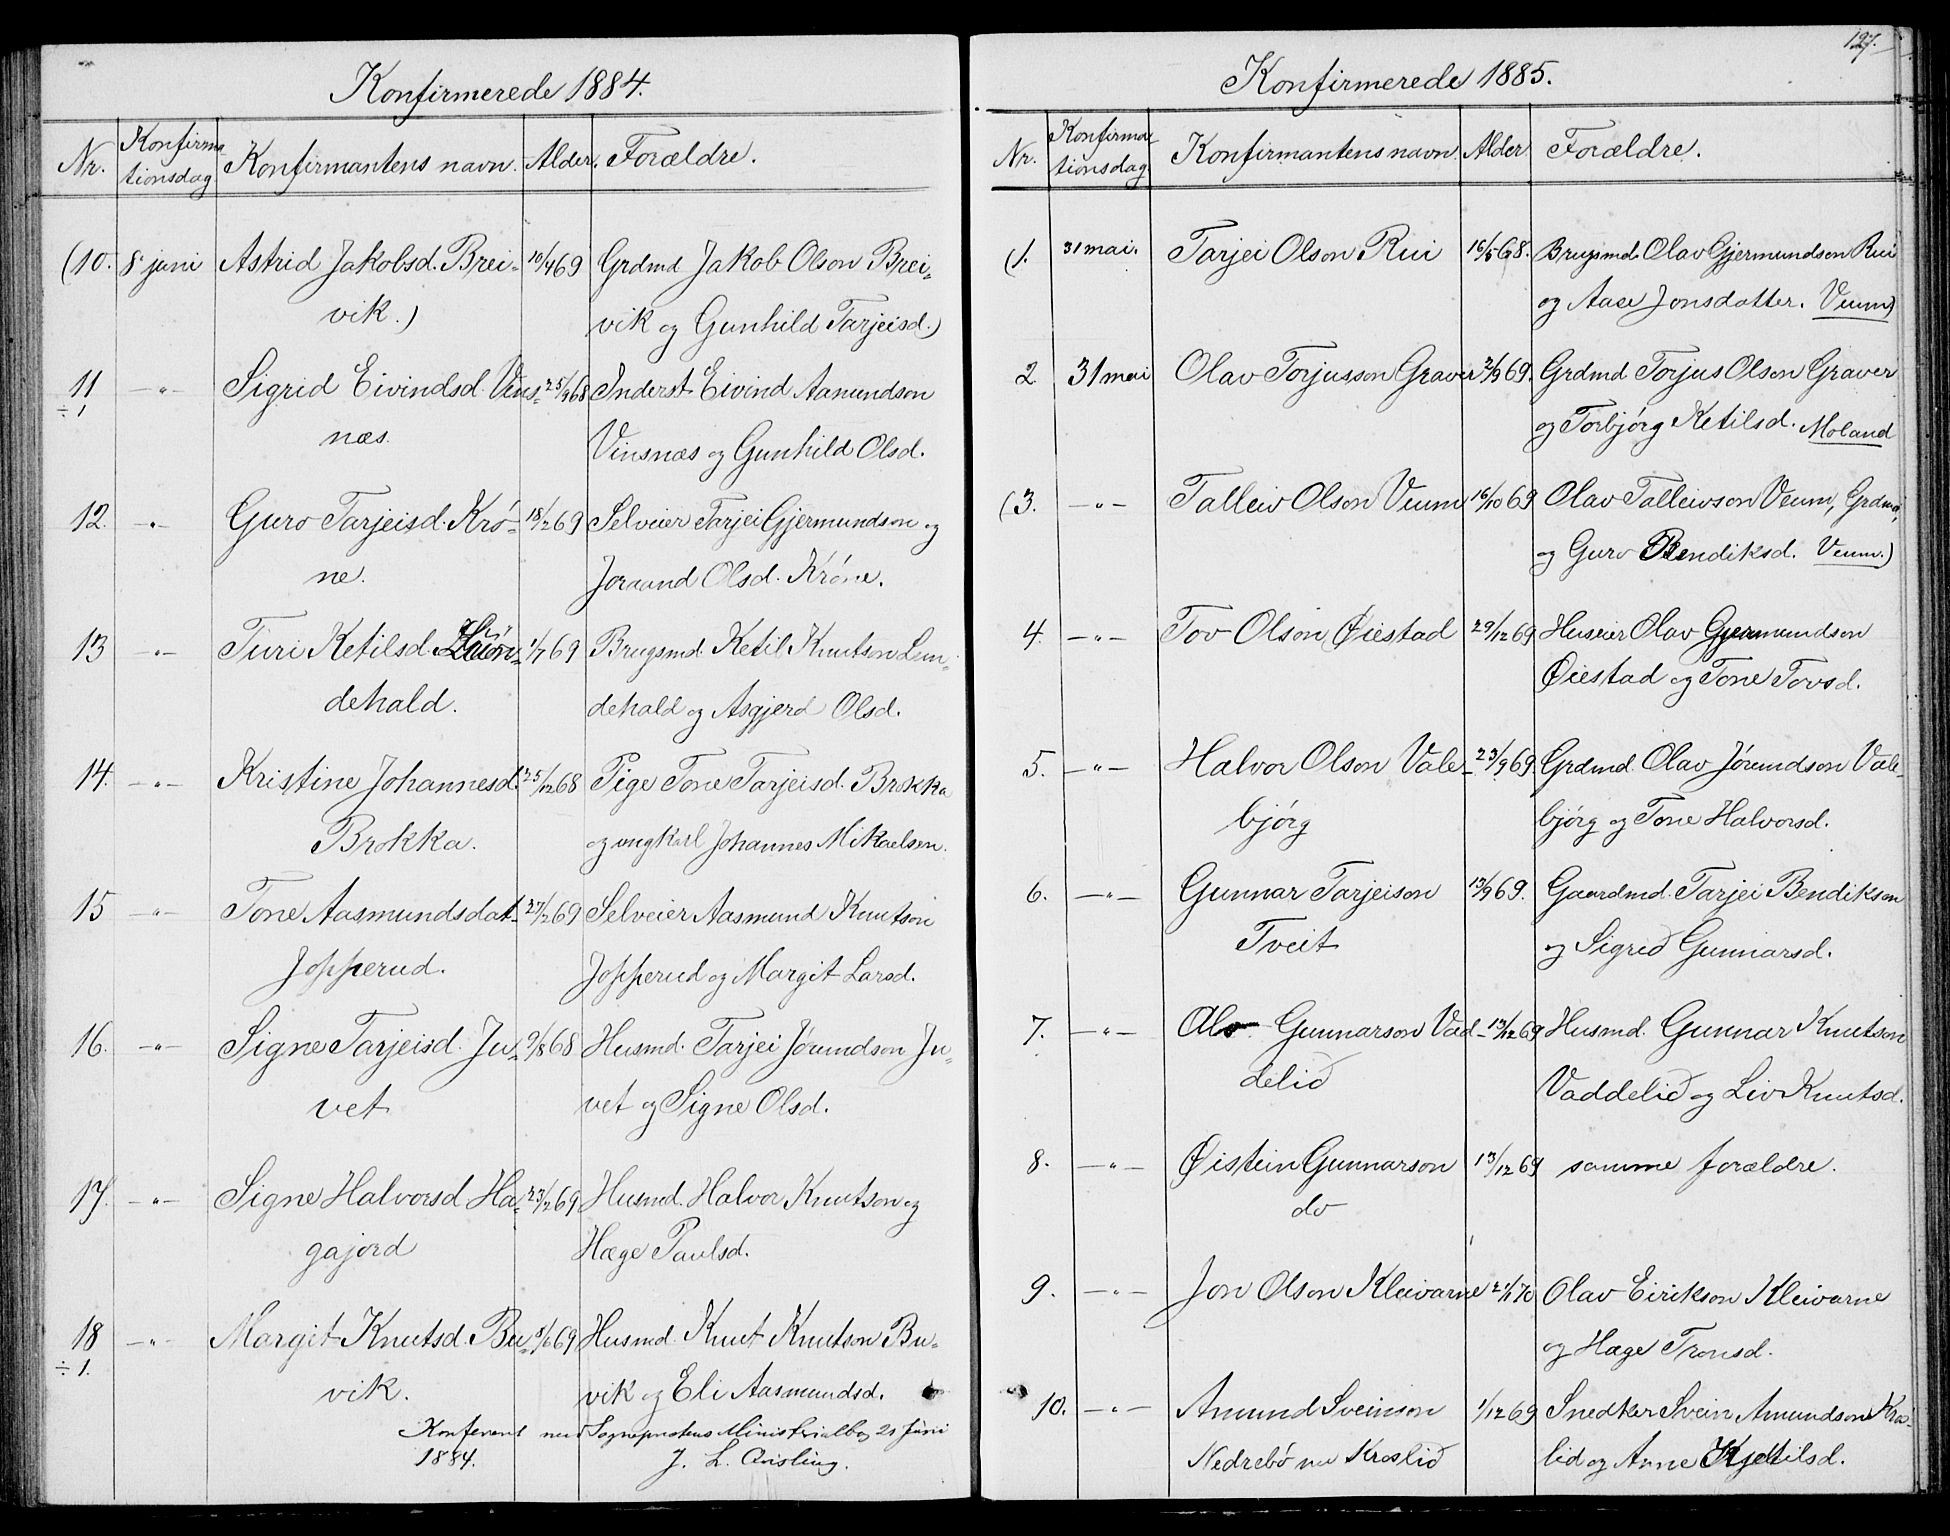 Konfirmerede 1884.
Nr. Konfirma- tionsdag Konfirmantens navn. Alder. Forældre.
(10. 8 juni Astrid Jakobsd. Brei- 10/4 69 Grdmd Jakob Olson Brei-
vik.) vik og Gunhild Tarjeisd.)
11 -"- Sigrid Eivindsd. Vins- 25/9 68 Inderst Eivind Aamundson
÷1 næs. Vinsnæs og Gunhild Olsd.
12. -"- Guro Tarjeisd. Kró- 18/2 69 Selveier Tarjei Gjermundson og
ne. Joraand Olsd. Króne.
13 -"- Turi Ketilsd. 1/7 69 Brugsmd. Ketil Knutson Lun-
dehald. dehald og Asgjerd Olsd.
14. -"- Kristine Johannesd. 25/12 68 Pige Tone Tarjeisd. Brokka
Brokka. og ungkarl Johannes Mikaelsen.
15 -"- Tone Aasmundsdat. 27/2 69 Selveier Aasmund Knutson
Jopperud. Jopperud og Margit Larsd.
16. -"- Signe Tarjeisd. Ju- 9/8 68 Husmd. Tarjei Jørundson Ju-
vet vet og Signe Olsd.
17. -"- Signe Halvorsd Ha- 23/2 69 Husmd. Halvor Knutson og
gajord Hæge Paulsd.
18 -"- Margit Knutsd. Bu- 69 Husmd. Knut Knutson Bu-
÷1. vik. vik og Eli Aasmundsd.
Konfereret med Sogneprestens Ministerialbog 21 Juni
1884. J. L. Qvisling.
127.
Konfirmerede 1885.
Nr. Konfirma- tionsdag Konfirmantens navn. Alder Forældre.
(1. 31 mai. Tarjei Olson Rui 16/5 68. Brugsmd. Olav Gjermundson Rui
og Aase Jonsdatter. Veum)
2 31 mai Olav Torjusson Graver 2/9 69. Grdmd Torjus Olson Graver
og Torbjørg Ketilsd. Moland
(3. -"- Talleiv Olson Veum 16/10 69 Olav Talleivson Veum, Grdmd,
og Guro Bendiksd. Veum.)
4. -"- Tov Olson Øiestad 29/12 69 Huseier Olav Gjermundson
Øiestad og Tone Tovsd.
5. -"- Halvor Olson Vale- 23/9 69. Grdmd. Olav Jørundson Vale-
bjørg bjørg og Tone Halvorsd.
6. -"- Gunnar Tarjeison 13/9 69. Gaardmd. Tarjei Bendikson
Tveit og Sigrid Gunnarsd.
7. -"- Gunnarson Vad- 13/12 69 Husmd. Gunnar Knutson
delid Vaddelid og Liv Knutsd.
8. -"- Øistein Gunnarson 13/12 69 samme forældre.
do
9. -"- Jon Olson Kleivarne 21/1 70 Olav Eirikson Kleivarne
og Hæge Tronsd.
10. -"- Amund Sveinson 1/12 69 Snedker Svein Amundson Kros-
Nedrebø nu Kroslid lid og Anne Kjetilsd.